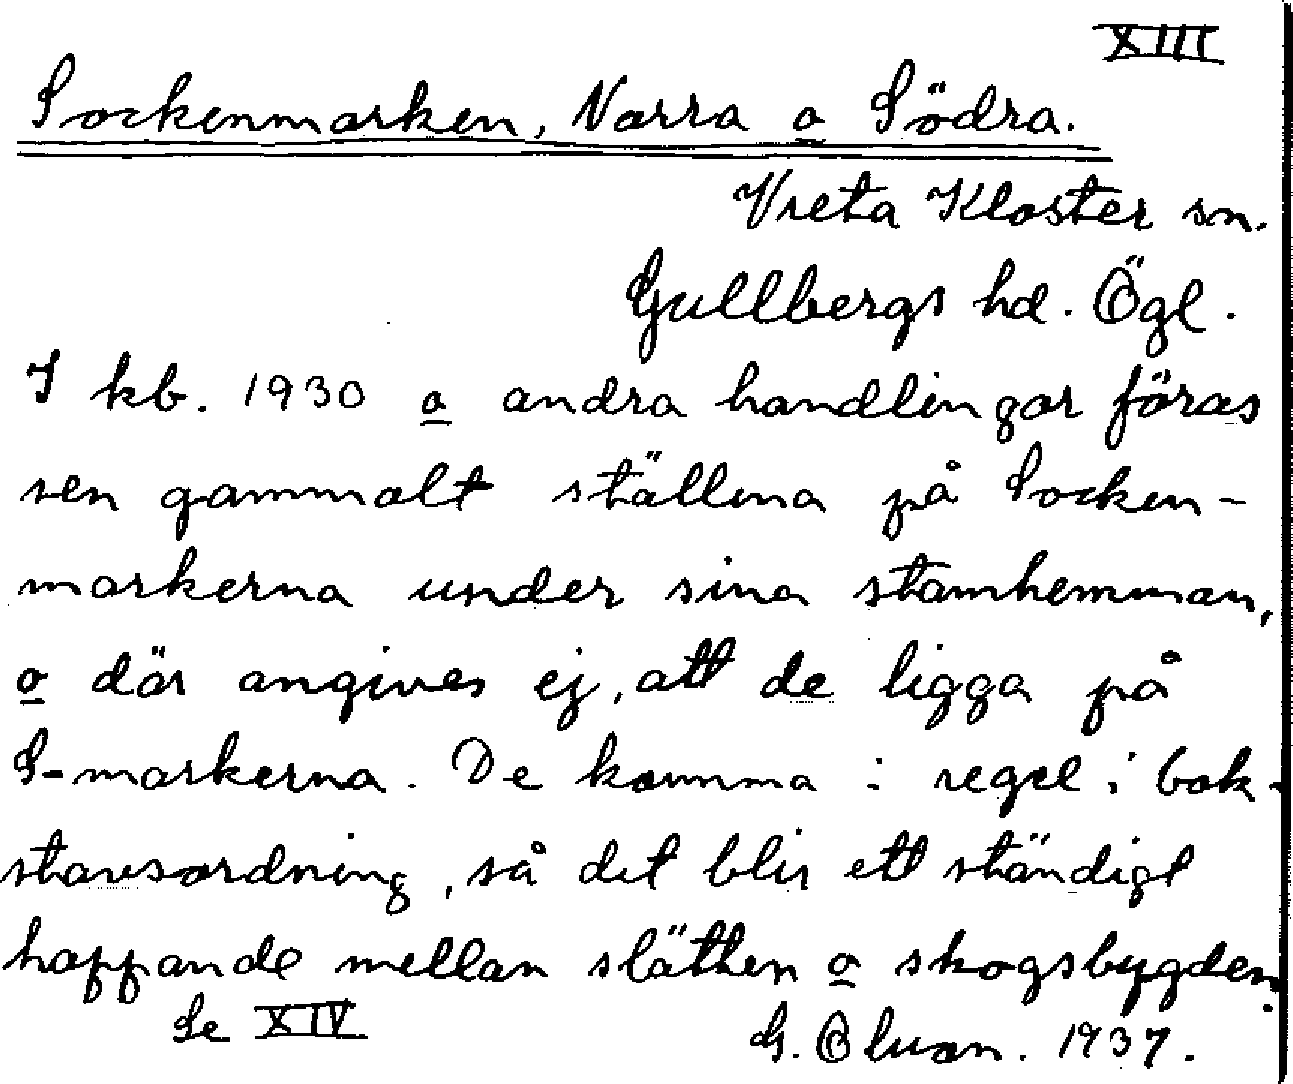 XIII
Sockenmarken, Norra o Södra.
Vreta Kloster sn.
Gullbergs hd. Ögl.
I kb. 1930 o andra handlingar föras
sen gammalt ställena på Socken-
markerna under sina stamhemman,
o där angives ej, att de ligga på
S-markerna. De komma i regel i bok-
stavsordning, så det blir ett ständigt
hoppande mellan slätten o skogsbygden.
Se XIV
G. Olson. 1937.